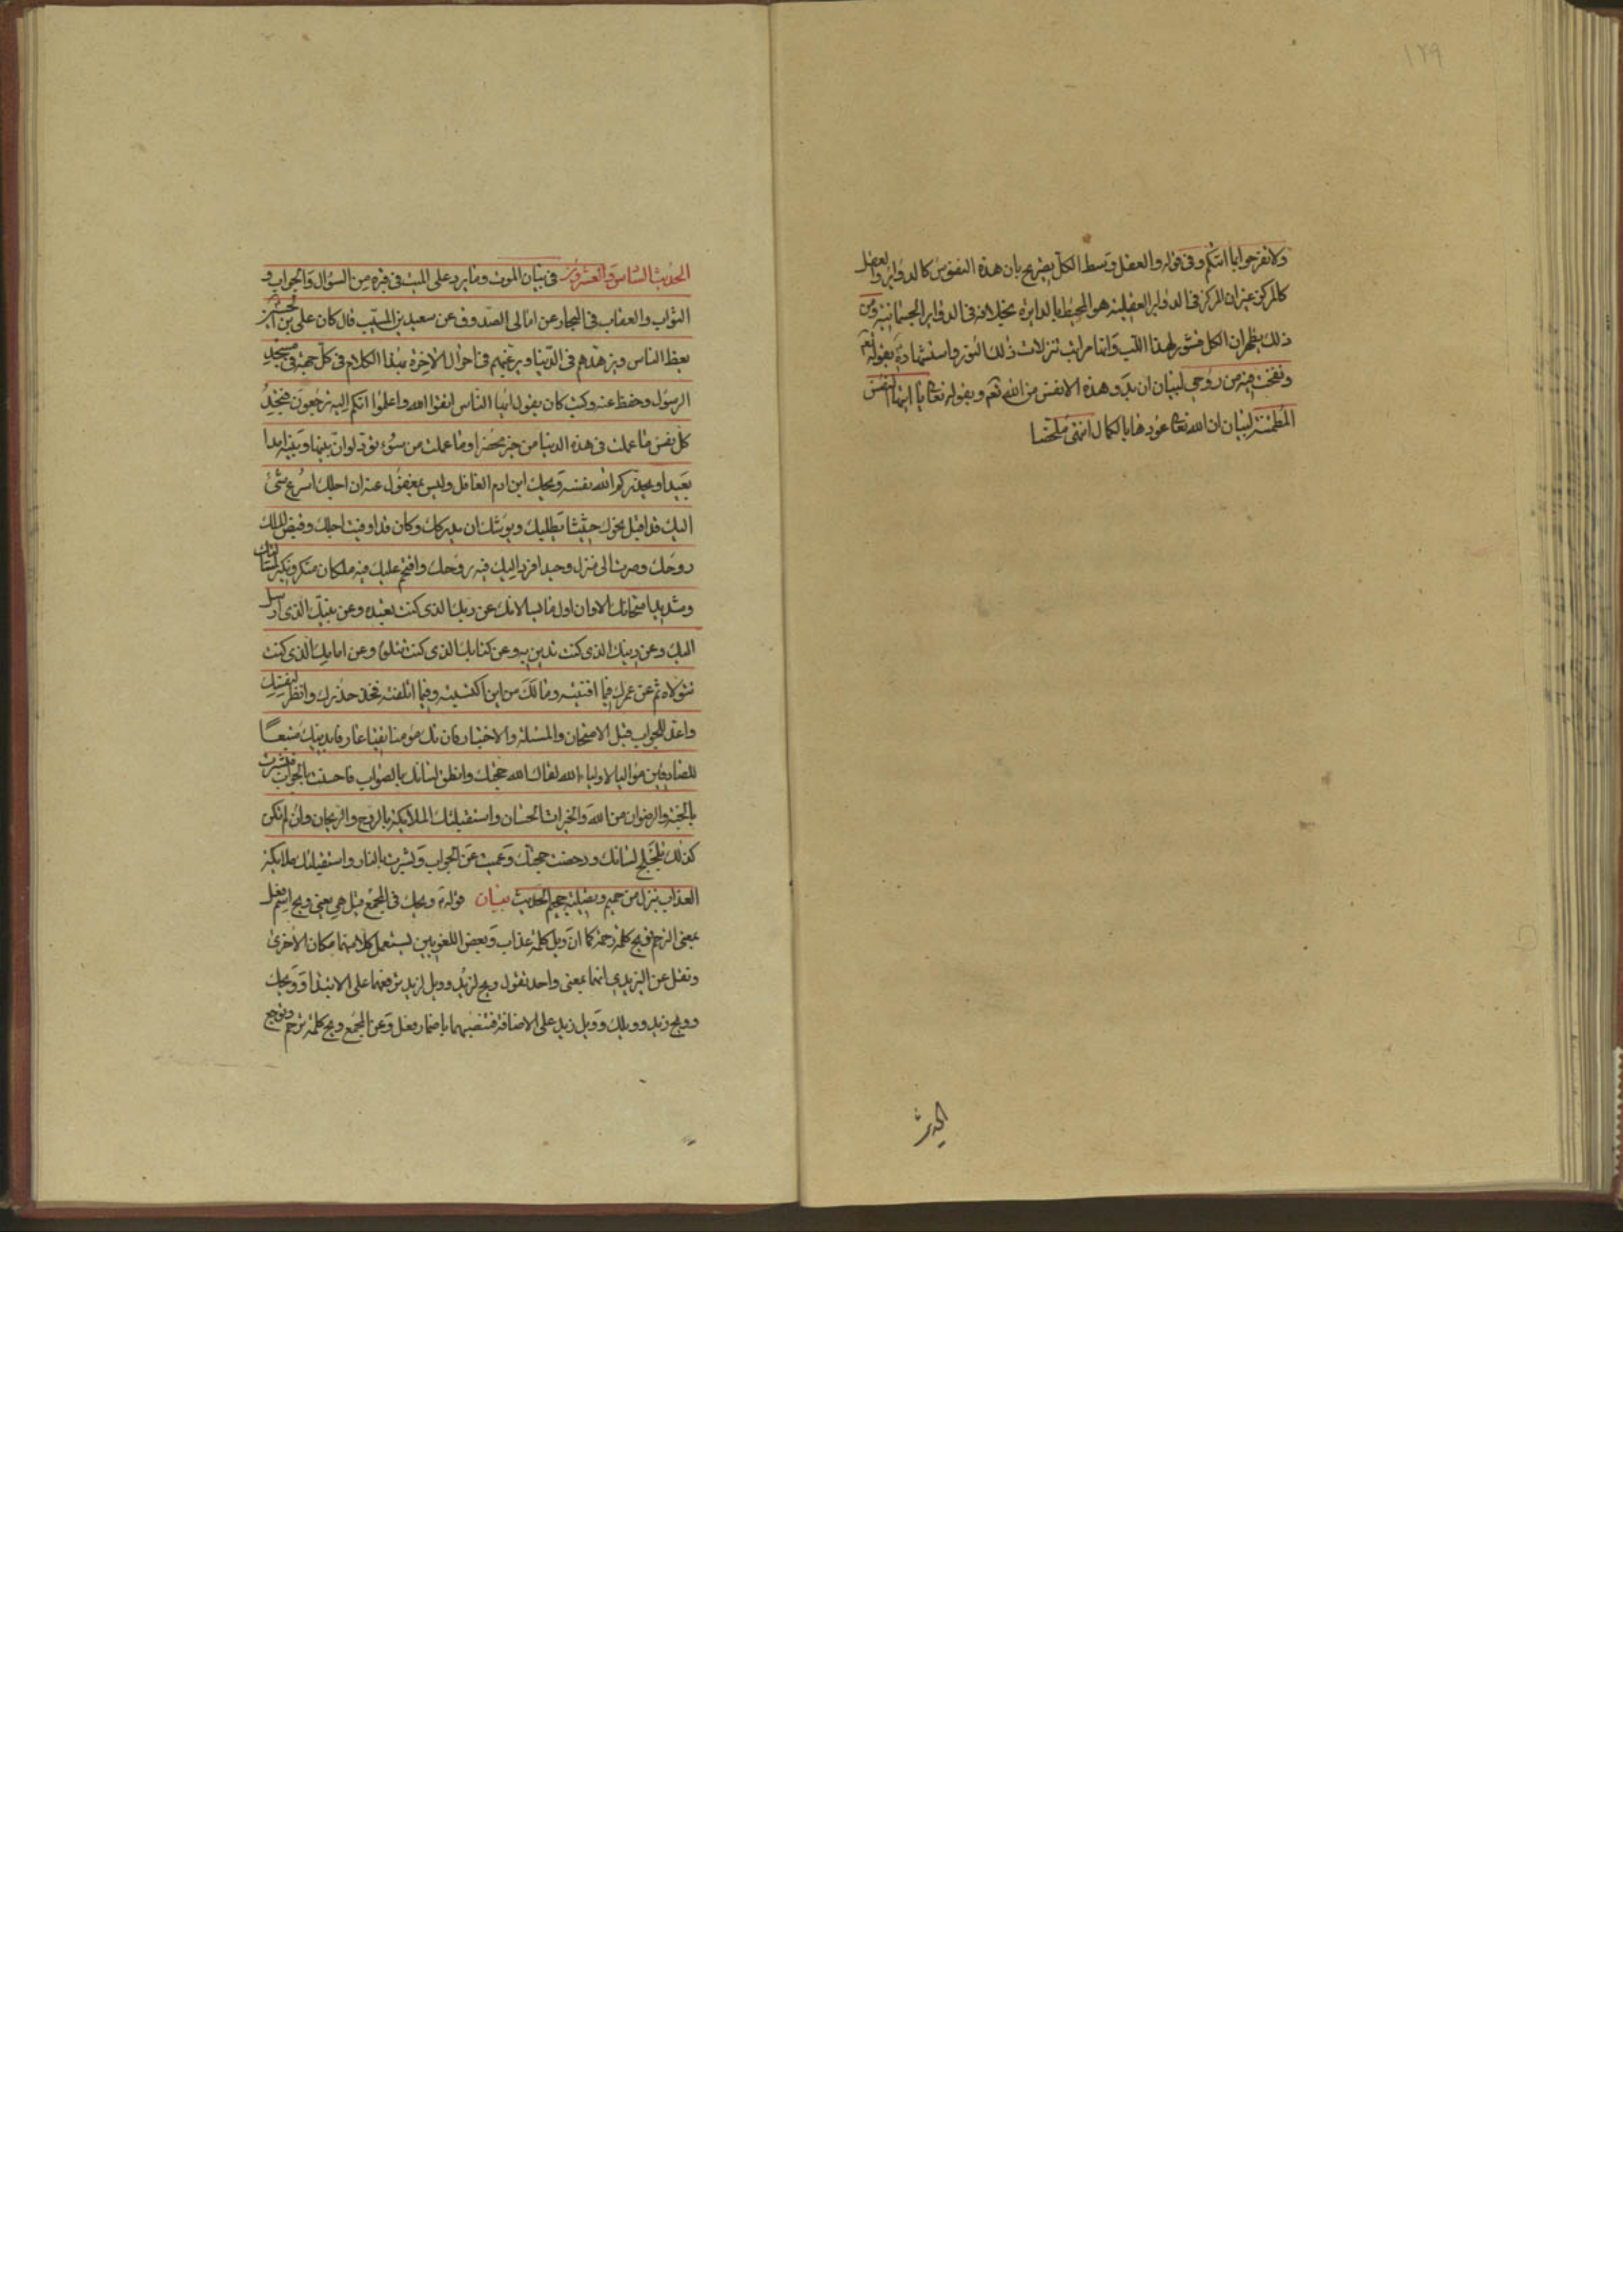 ١٢٩
ولا تفرحوا بما اتيكم وفى قوله والعقل وسط الكل تصريح بان هذه النفوس كالدواير والعقل
كالمركز غير ان المركز فى الدواير العقلية هو المحيط بالدايرة بخلافه فى الدواير الجسمانية ومن
ذلك يظهر ان الكل قشور لهذا اللب وانما مراتب تنزلات ذلك النور واستشهاده بقوله تعم
ونفخت فيه من روحى لبيان ان بدو هذه الانفس من الله تعم وبقوله تعا يا ايتها النفس
المطمئنة لبيان ان الله تعا عودها بالكمال انتهى ملخصا
الحديث
الحديث السادس والعشرون فى بيان الموت وما يرد على الميت فى قبره من السؤال والجواب و
الثواب والعقاب فى البحار عن امالى الصدوق عن سعيد بن المسيب قال كان على بن الحسين
يعظ الناس ويزهدهم فى الدنيا ويرغبهم فى احوال الاخرة بهذا الكلام فى كل جمعة فى مسجد
الرسول وحفظ عنه وكتب كان يقول ايها الناس اتقوا الله واعلموا انكم اليه ترجعون فتجد
كل نفس ما عملت فى هذه الدنيا من خير محضرا وما عملت من سوء تود لو ان بينها وبينه امدا
بعيدا ويحذركم الله نفسه ويحك ابن ادم الغافل وليس بمغفول عنه ان اجلك اسرع شئ
اليك قد اقبل نحوك حثيثا يطلبك ويوشك ان يدركك وكان قد اوفيت اجلك وقبض الملك
روحك وصرت الى منزل وحيدا فرد اليك فيه روحك واقتحم عليك فيه ملكان منكر ونكير لمسائلتك
وشديد امتحانك الا وان اول ما يسالانك عن ربك الذى كنت تعبده وعن نبيك الذى ارسل
اليك وعن دينك الذى كنت تدين به وعن كتابك الذى كنت تتلوه وعن امامك الذى كنت
تتولاه ثم عن عمرك فيما افنيته ومالك من اين اكتسبته وفيما اتلفته فخذ حذرك وانظر لنفسك
واعد للجواب قبل الامتحان والمسئلة والاختبار فان تك مؤمنا تقيا عارفا بدينك متبعا
للصادقين مواليا لاولياء الله لقاك الله حجتك وانطق لسانك بالصواب فاحسنت الجواب فبشرت
بالجنة والرضوان من الله والخيرات الحسان واستقبلتك الملائكة بالروح والريحان وان لم تكن
كذلك تلجلج لسانك ودحضت حجتك وعميت عن الجواب وبشرت بالنار واستقبلتك ملائكة
العذاب بنزل من حميم وتصلية جحيم الحديث بيان قوله ويحك فى المجمع قيل هى بمعنى ويح اسم فعل
بمعنى الترحم فويح كلمة رحمة كما ان ويل كلمة عذاب وبعض اللغويين يستعمل كلا منهما مكان الاخرى
ونقل عن اليزيدى انهما بمعنى واحد تقول ويح لزيد وويل لزيد ترفعهما على الابتداء وويحك
وويح زيد وويلك وويل زيد على الاضافة فتنصبهما باضمار فعل وعن المجمع ويح كلمة ترحم وتوجع